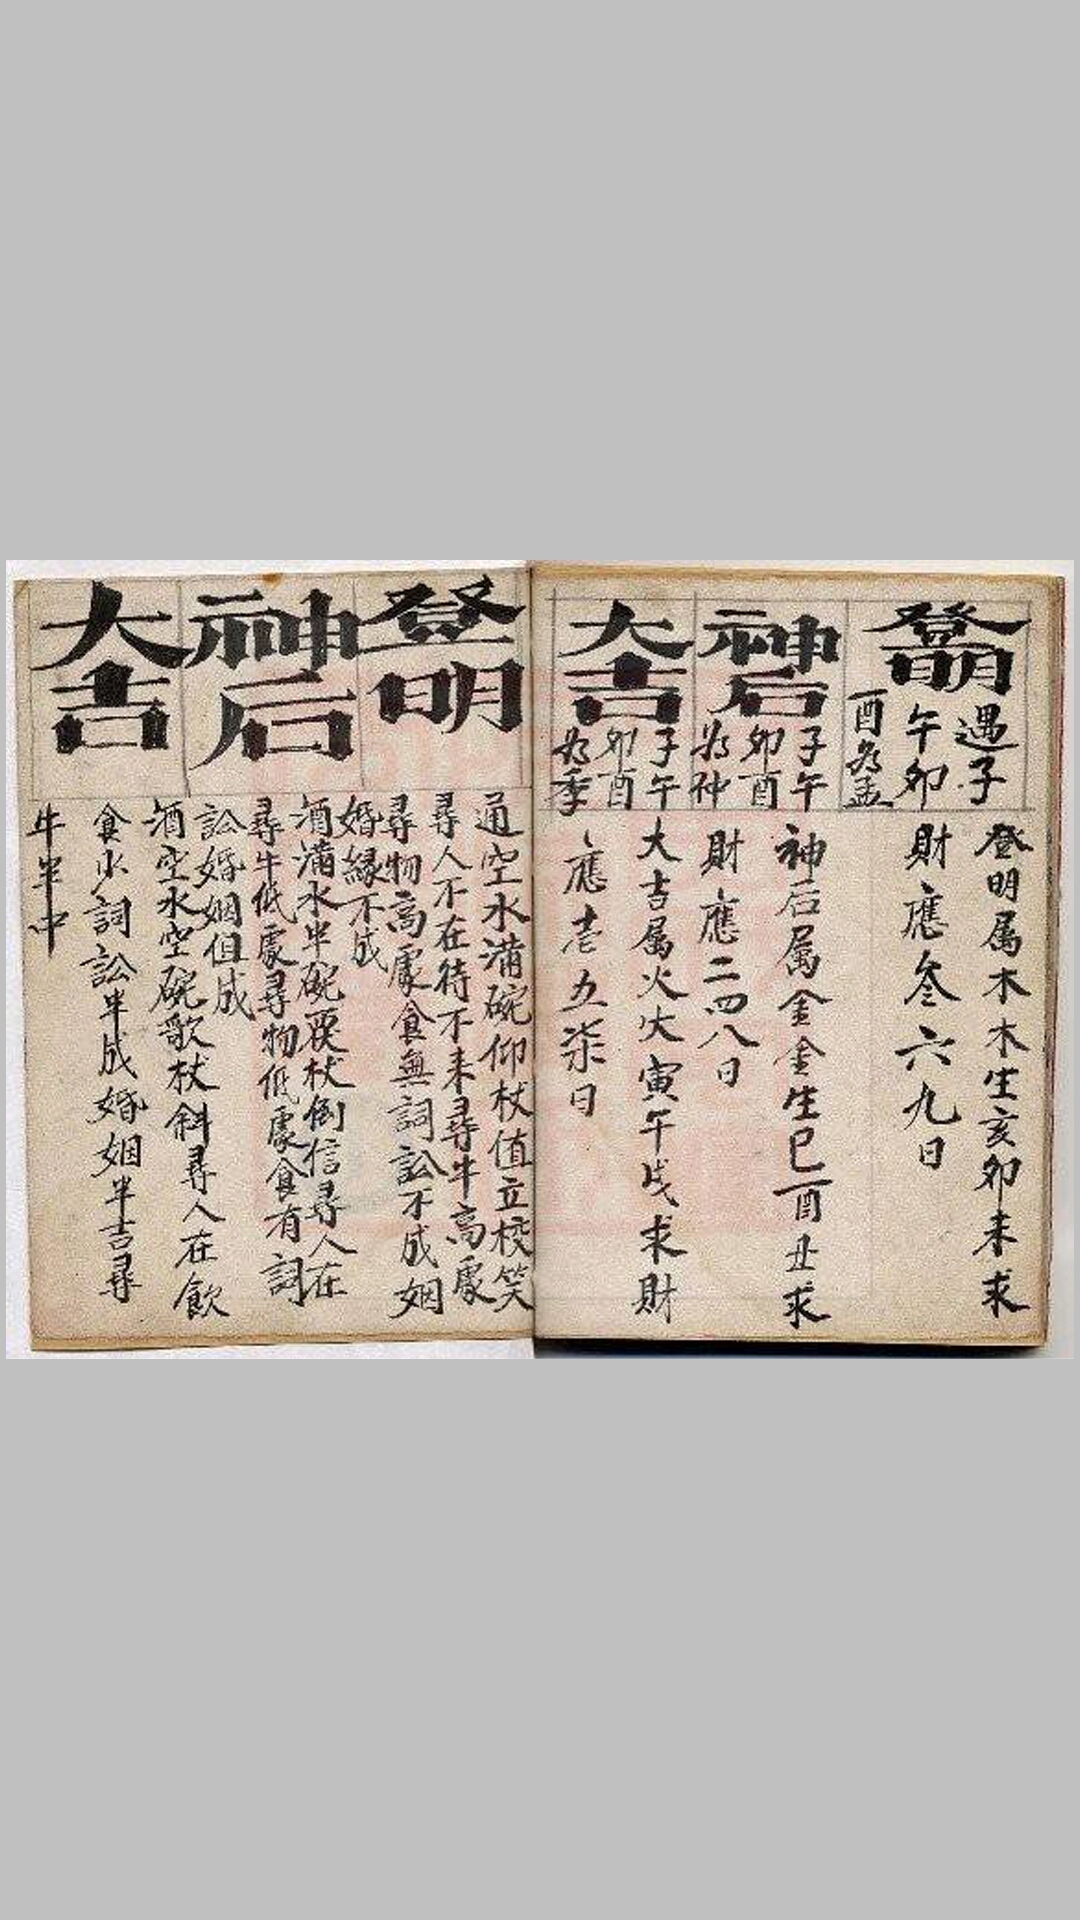 登明
遇子
午卯
酉為孟
登明属木木生亥卯未求
財應叁六九日
神后
子午
卯酉
為仲
神后属金金生巳酉丑求
財應二四八日
大吉
子午
卯酉
為季
大吉属火火寅午戌求財
應壱五柒日
登明
通空水滿碗仰杖值立校笑
尋人不在待不来尋牛高處
尋物高處食無詞訟不成姻
婚緣不成
神后
酒滿水半碗覆杖倒信尋人在
尋牛低處尋物低處食有詞
訟婚姻但成
大吉
酒空水空碗歌杖斜尋人在飲
食水詞訟半成婚姻半吉尋
牛半中